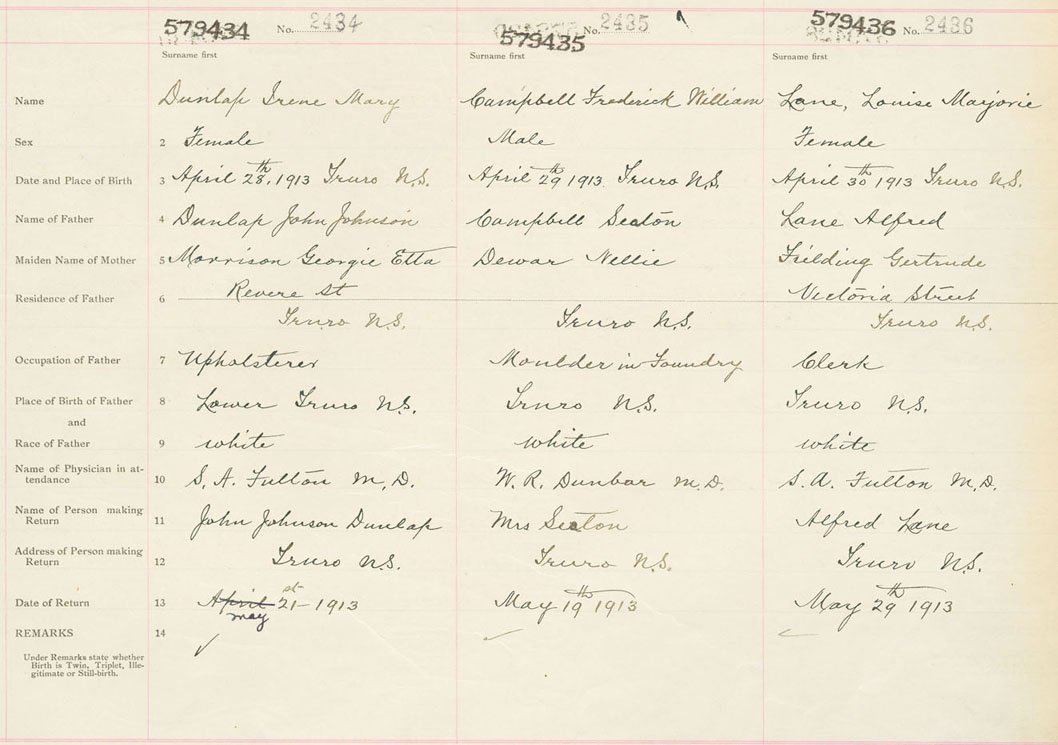 579434 No. 2434 No. 2435 579436 No. 2436
579435
Surname first Surname first Surname first
Name Dunlap Irene Mary Campbell Frederick William Lane, Louise Marjorie
Sex 2 Female Male Female
Date and Place of Birth 3 April 28th, 1913 Truro N.S. April 29th 1913 Truro N.S. April 30th 1913 Truro N.S.
Name of Father 4 Dunlap John Johnson Campbell Seaton Lane Alfred
Maiden Name of Mother 5 Morrison Georgie Etta Dewar Nellie Feilding Gertrude
Residence of Father 6 Revere St Victoria Street
Truro N.S. Truro N.S. Truro N.S.
Occupation of Father 7 Upholsterer Moulder in Foundry Clerk
Place of Birth of Father 8 Lower Truro N.S. Truro N.S. Truro N.S.
and
Race of Father 9 white white white
Name of Physician in at-
tendance 10 S. A. Fulton M.D. W. R. Dunbar M.D. S. A. Fulton M.D.
Name of Person making
Return 11 John Johnson Dunlap Mrs Seaton Alfred Lane
Address of Person making
Return 12 Truro N.S. Truro N.S. Truro N.S.
Date of Return 13 April 21st 1913 May 19th 1913 May 29th 1913
may
REMARKS 14
Under Remarks state whether
Birth is Twin, Triplet, Ille-
gitimate or Still-birth.